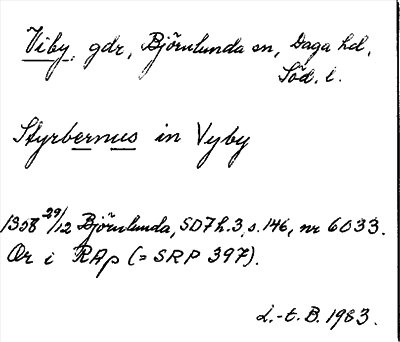 Viby, gdr, Björnlunda sn, Daga hd,
Söd. l.
Styrbernus in Vyby
1358 29/12 Björnlunda, SD7 h.3, s.146, nr 6033.
Or i RAp (= SRP 397).
L.-t. B. 1983.